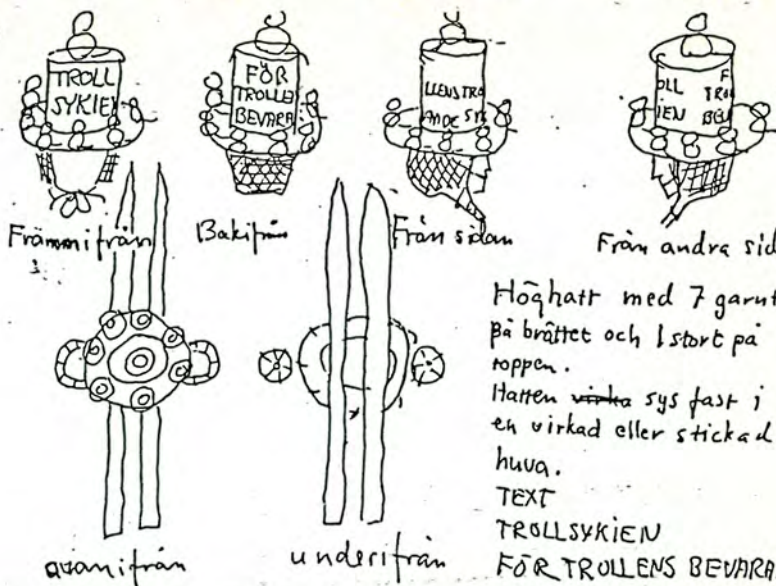 TROLL
SYKIEN
FÖR
TROLLE
BEVARA
LLENS TRO
ANDE SYK
OLL F
TROL
IEN BEV
Främmifrån
Bakifrån
Från sidan
Från andra sid
Höghatt med 7 garn
på brättet och 1 stort på
toppen.
Hatten virka sys fast i
en virkad eller stickad
huva.
TEXT
TROLLSYKIEN
FÖR TROLLENS BEVARA
ovanifrån
underifrån